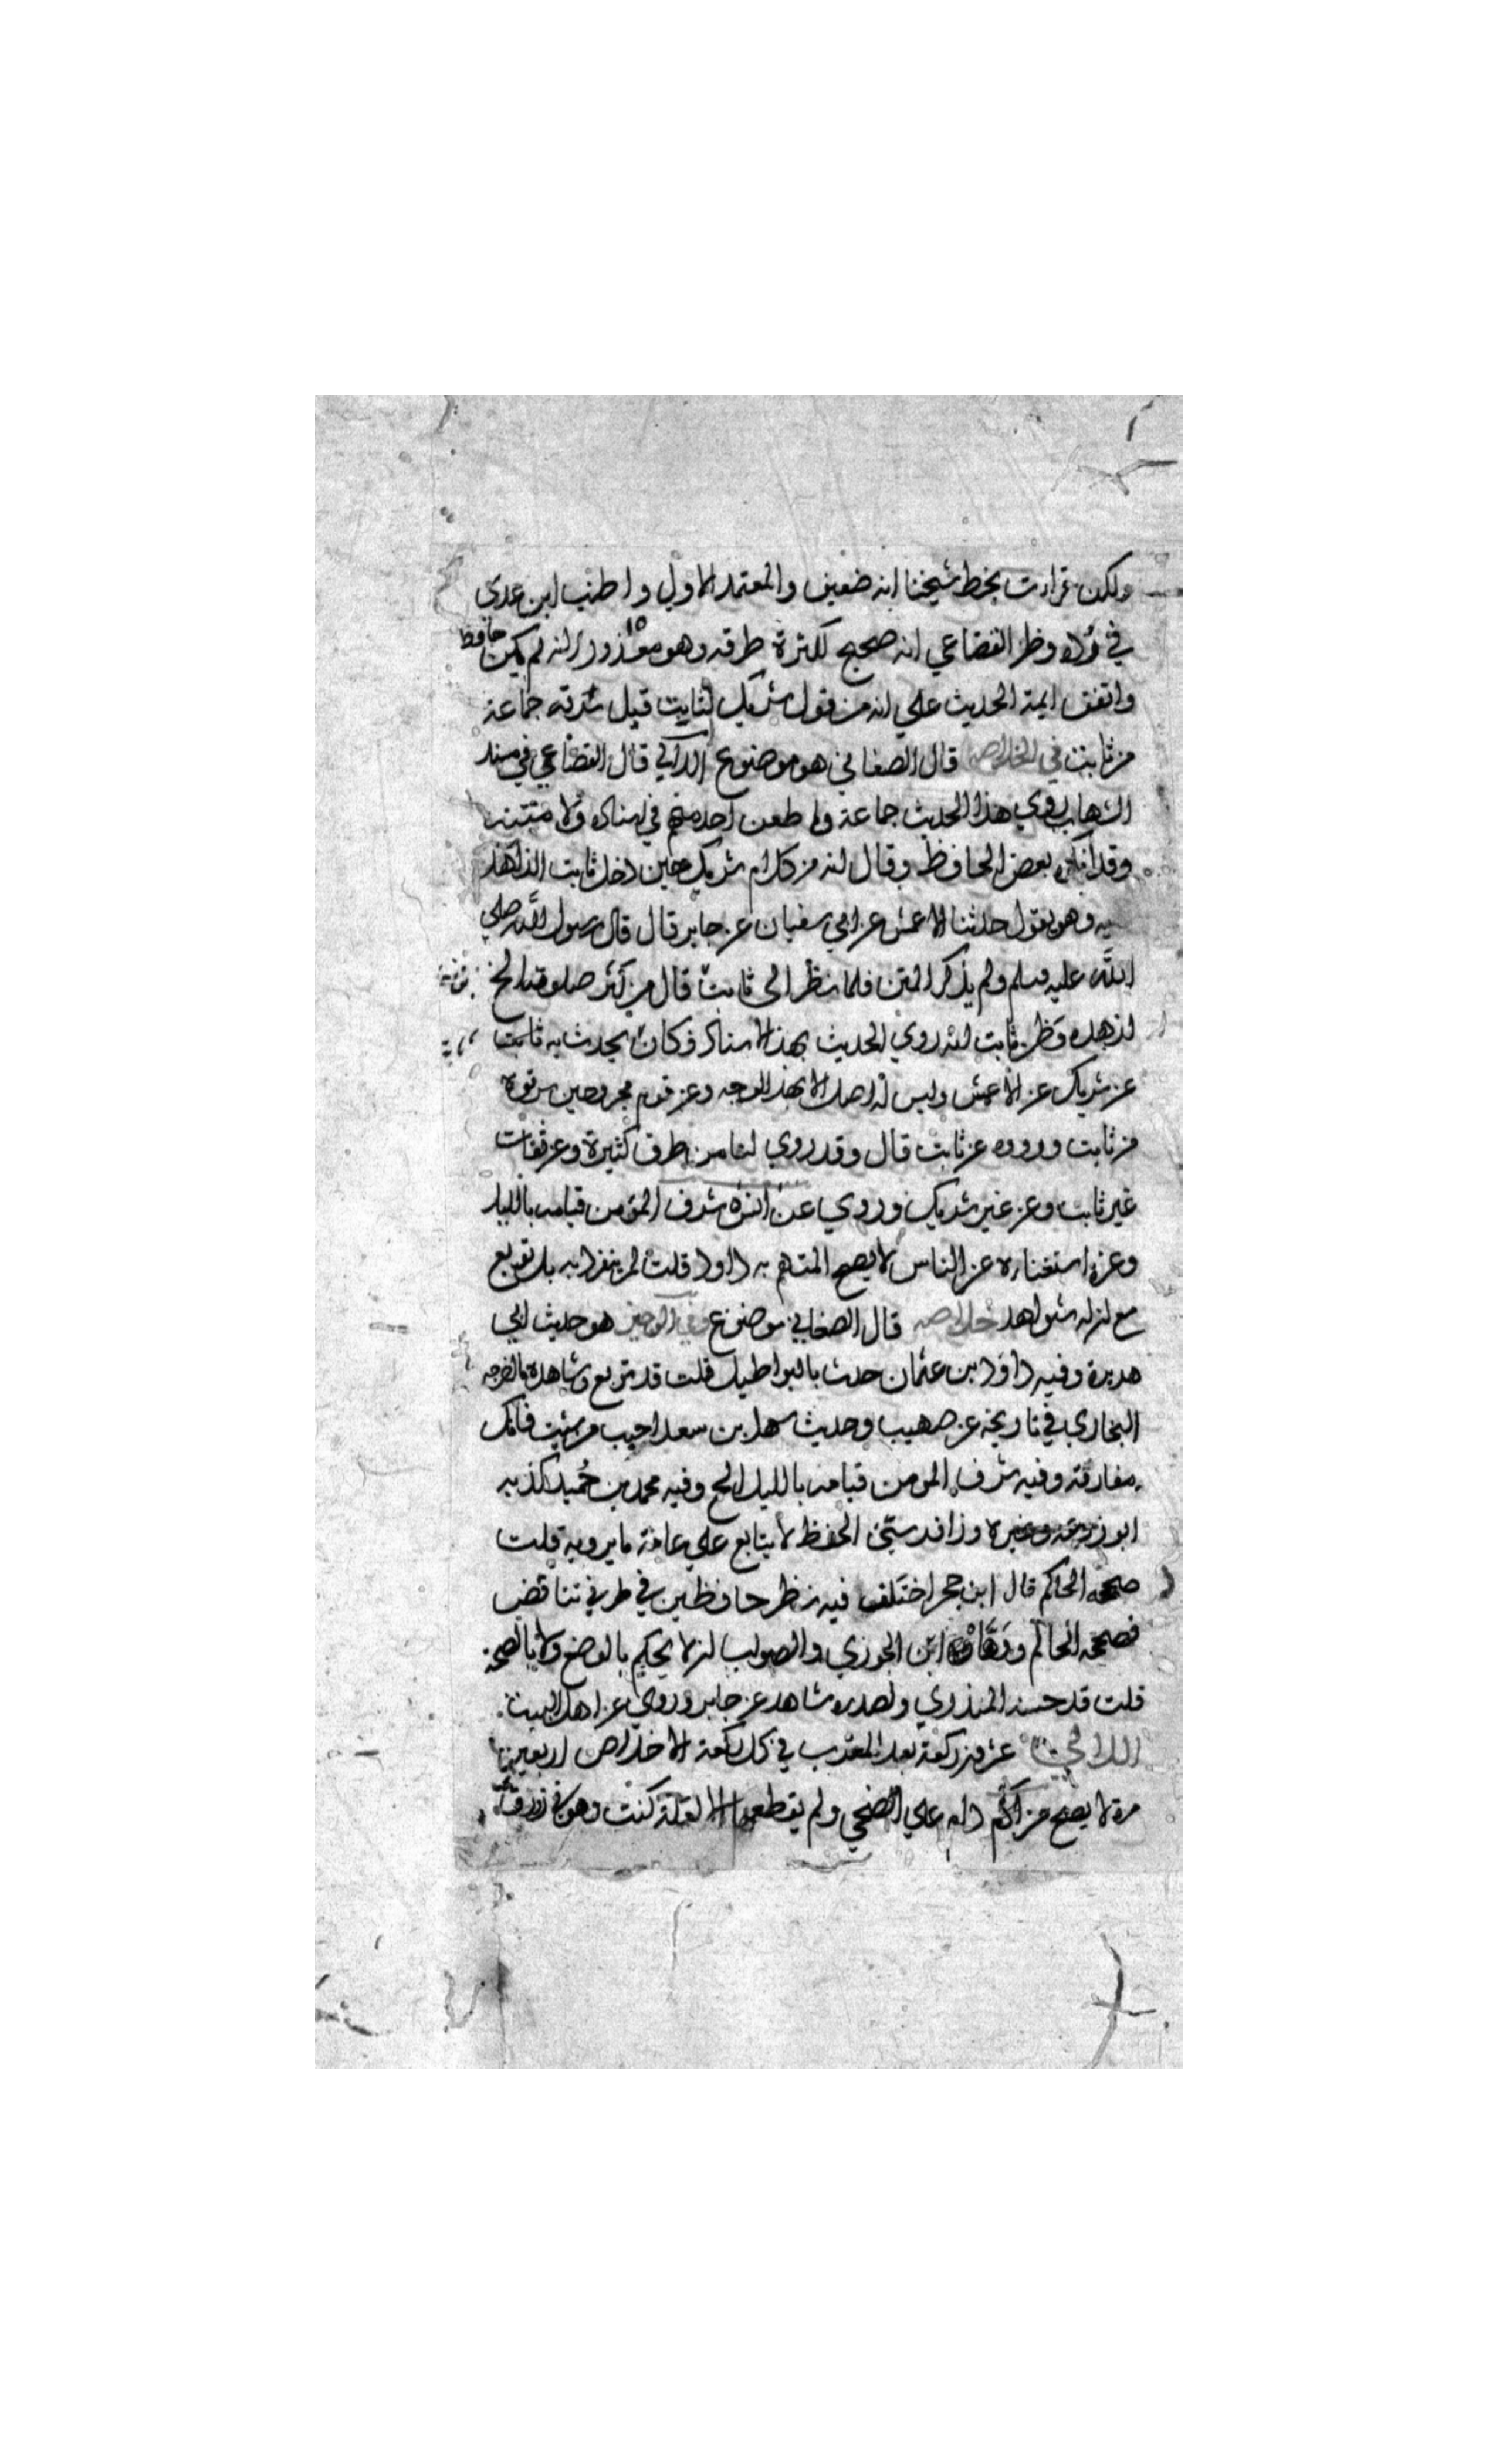 ولكن قراءت بخط شيخنا انه ضعيف والمعتمد الاول واطنب ابن عدي
في رده وظن القضاعي انه صحيح لكثرة طرقه وهو معذور لانه لم يكن حافظا
واتفق ايمة الحديث على انه من قول شريك لثابت قيل سرقه جماعة
من ثابت في الخلاصة قال الصغاني هو موضوع اللالي قال القضاعي في مسند
الشهاب روي هذا الحديث جماعة ولم طعن احد منهم في اسناده ولا متنه
وقد انكره بعض الحافظ وقال انه من كلام شريك حين دخل ثابت الزاهد
عليه وهو يقول حدثنا الاعمش عن ابي سفيان عن جابر قال قال رسول الله صلى
الله عليه وسلم ولم يذكر المتن فلما نظر الى ثابت قال من كثر صلوته الخ
لزهده فظن ثابت انه روي الحديث بهذا الاسناد فكان يحدث به ثابت
عن شريك عن الاعمش وليس له اصل الا بهذا الوجه وعن قوم مجروحين سرقوه
من ثابت ورووه عن ثابت قال وقد روي لنا من طرق كثيرة وعن ثقات
غير ثابت وعن غير شريك وروي عن انس شرف المؤمن قيامه بالليل
وعزه استغناءه عن الناس لا يصح المتهم به داود قلت لم ينفرد به بل توبع
مع ان له شواهد خلاصه قال الصغاني موضوع وفي الوجيز هو حديث ابي
هريرة وفيه داود بن عثمان حدث بالبواطيل قلت قد توبع وشاهده ما اخرجه
البخاري في تاريخه عن صهيب وحديث سهل بن سعد احبب من شئت فانك
مفارقه وفيه شرف المومن قيامه بالليل الخ وفيه محمد بن حُميد كذبه
ابو زرعة وغيره وزافر سيئ الحفظ لا يتابع على عامة ما يرويه قلت
صححه الحاكم قال ابن حجر اختلف فيه نظر حافظين في طرفي تناقض
فصححه الحاكم ووهاه ابن الجوزي والصواب ان لا يحكم بالوضع ولا بالصحة
قلت قد حسنه المنذري ولصدره شاهد عن جابر وروي عن اهل البيت
اللالي عشرين ركعة بعد المغرب في كل ركعة الاخلاص اربعين
مرة لا يصح من داوم على الضحى ولم يقطعها الا لعلة كنت وهو في زورق